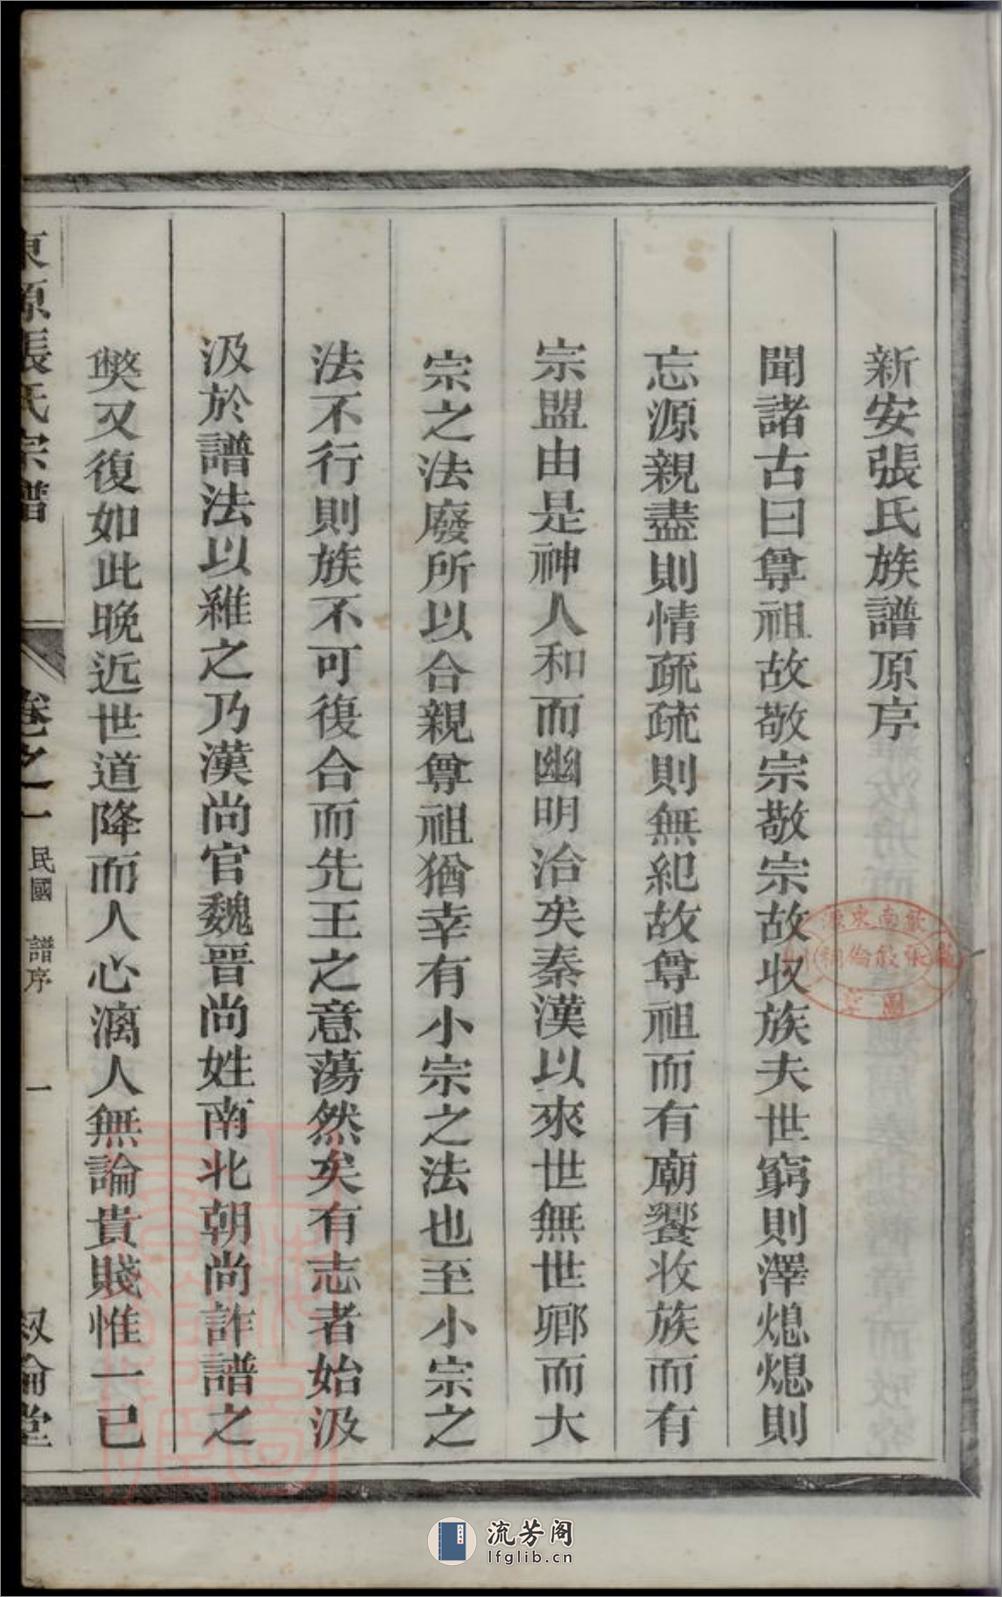 新安張氏族譜原序
聞諸古曰尊祖故敬宗敬宗故収族夫世窮則澤熄熄則
忘源親盡則情疏疏則無紀故尊祖而有廟饗收族而有
宗盟由是神人和而幽明治矣秦漢以來世無世卿而大
宗之法廢所以合親尊祖猶幸有小宗之法也至小宗之
法不行則族不可復合而先王之意蕩然矣有志者始汲
汲於譜法以維之乃漢尚官魏晉尚姓南北朝尚詐譜之
獘又復如此晚近世道降而人心漓人無論貴賤惟一己
東源張氏宗譜
卷之一
民國
譜序
一
敘倫堂
流芳阁
lfglib.cn